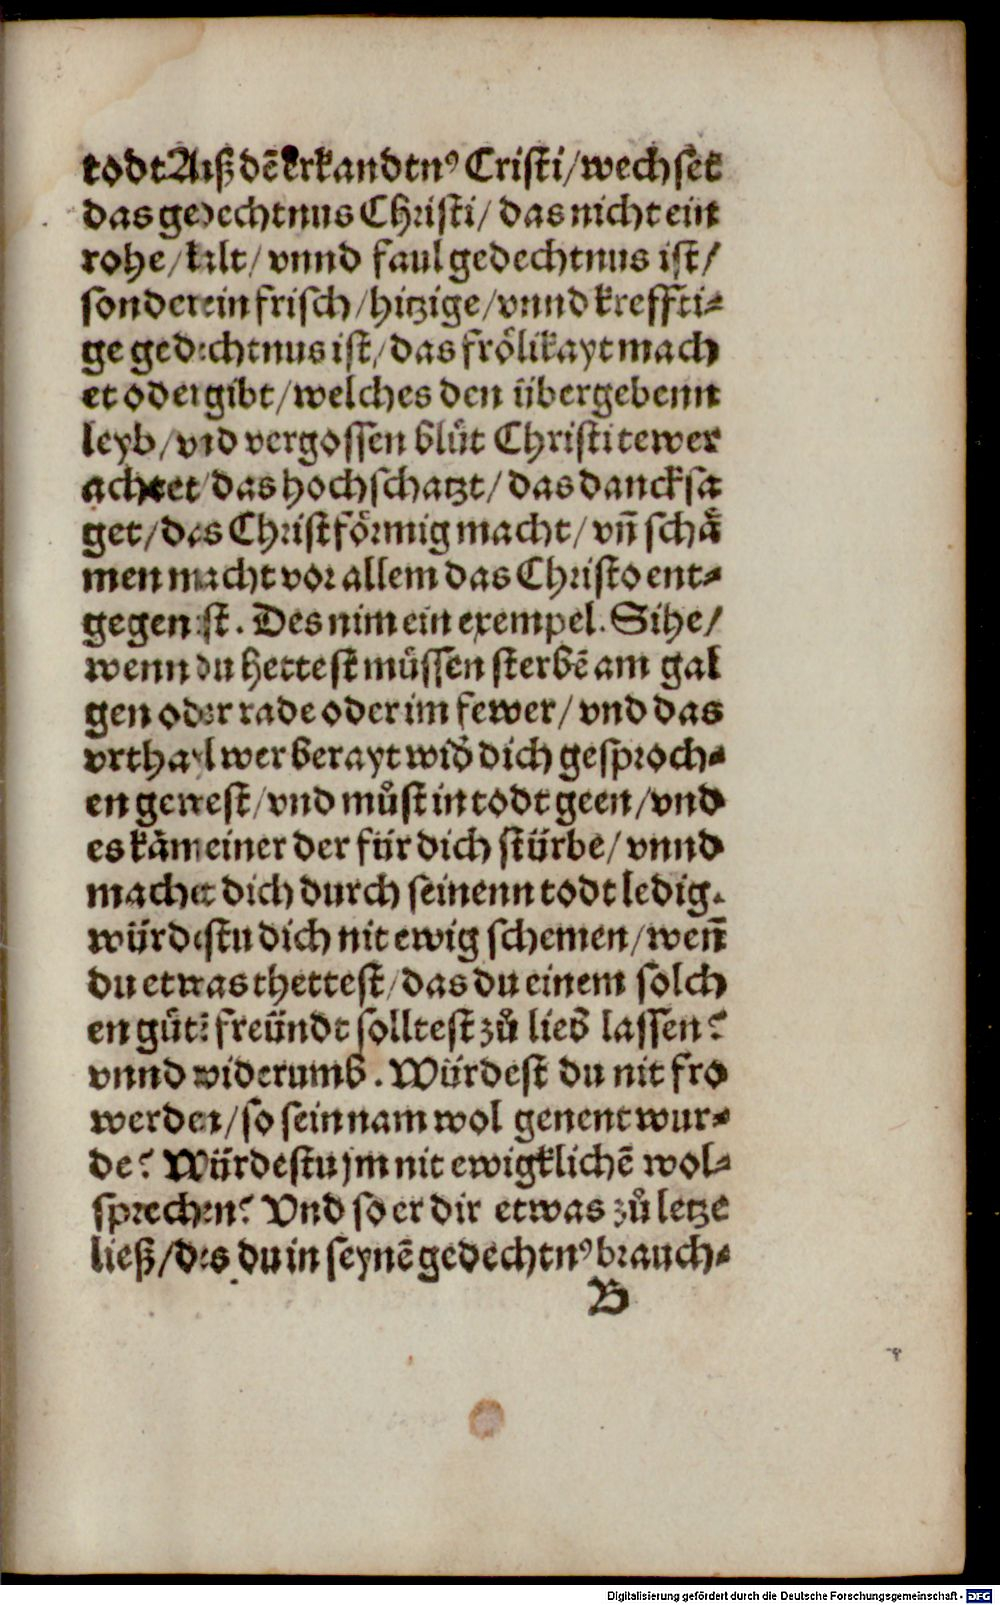 todt Auß dē erkandtn⁹ Cristi/wechset
das gedechtnus Christi/ das nicht ein
rohe/kalt/ vnnd faul gedechtnus ist/
sonder ein frisch/hitzige/vnnd kreffti⸗
ge gedechtnus ist/das frölikayt mach
et oder gibt/welches den übergebenn
leyb/vnd vergossen blůt Christi tewer
achtet/das hochschatzt/das dancksa
get/des Christförmig macht/vn̄ schå
men macht vor allem das Christo ent⸗
gegen ist. Des nim ein exempel. Sihe/
wenn du hettest müssen sterbē am gal
gen oder rade oder im fewer/vnd das
vrthayl wer berayt wid̕ dich gesproch⸗
en gewest/vnd můst in todt geen/vnd
es käm einer der für dich stürbe/vnnd
machet dich durch seinenn todt ledig.
würdestu dich nit ewig schemen/wen̄
du etwas thettest/das du einem solch
en gůtē freündt solltest zů lieb lassen?
vnnd widerumb. Würdest du nit fro
werden/so sein nam wol genent wur⸗
de? Würdestu jm nit ewigklichē wol⸗
sprechen? Vnd so er dir etwas zů letze
ließ/des du in seynē gedechtn⁹ brauch⸗
B
Digitalisierung gefördert durch die Deutsche Forschungsgemeinschaft - DFG